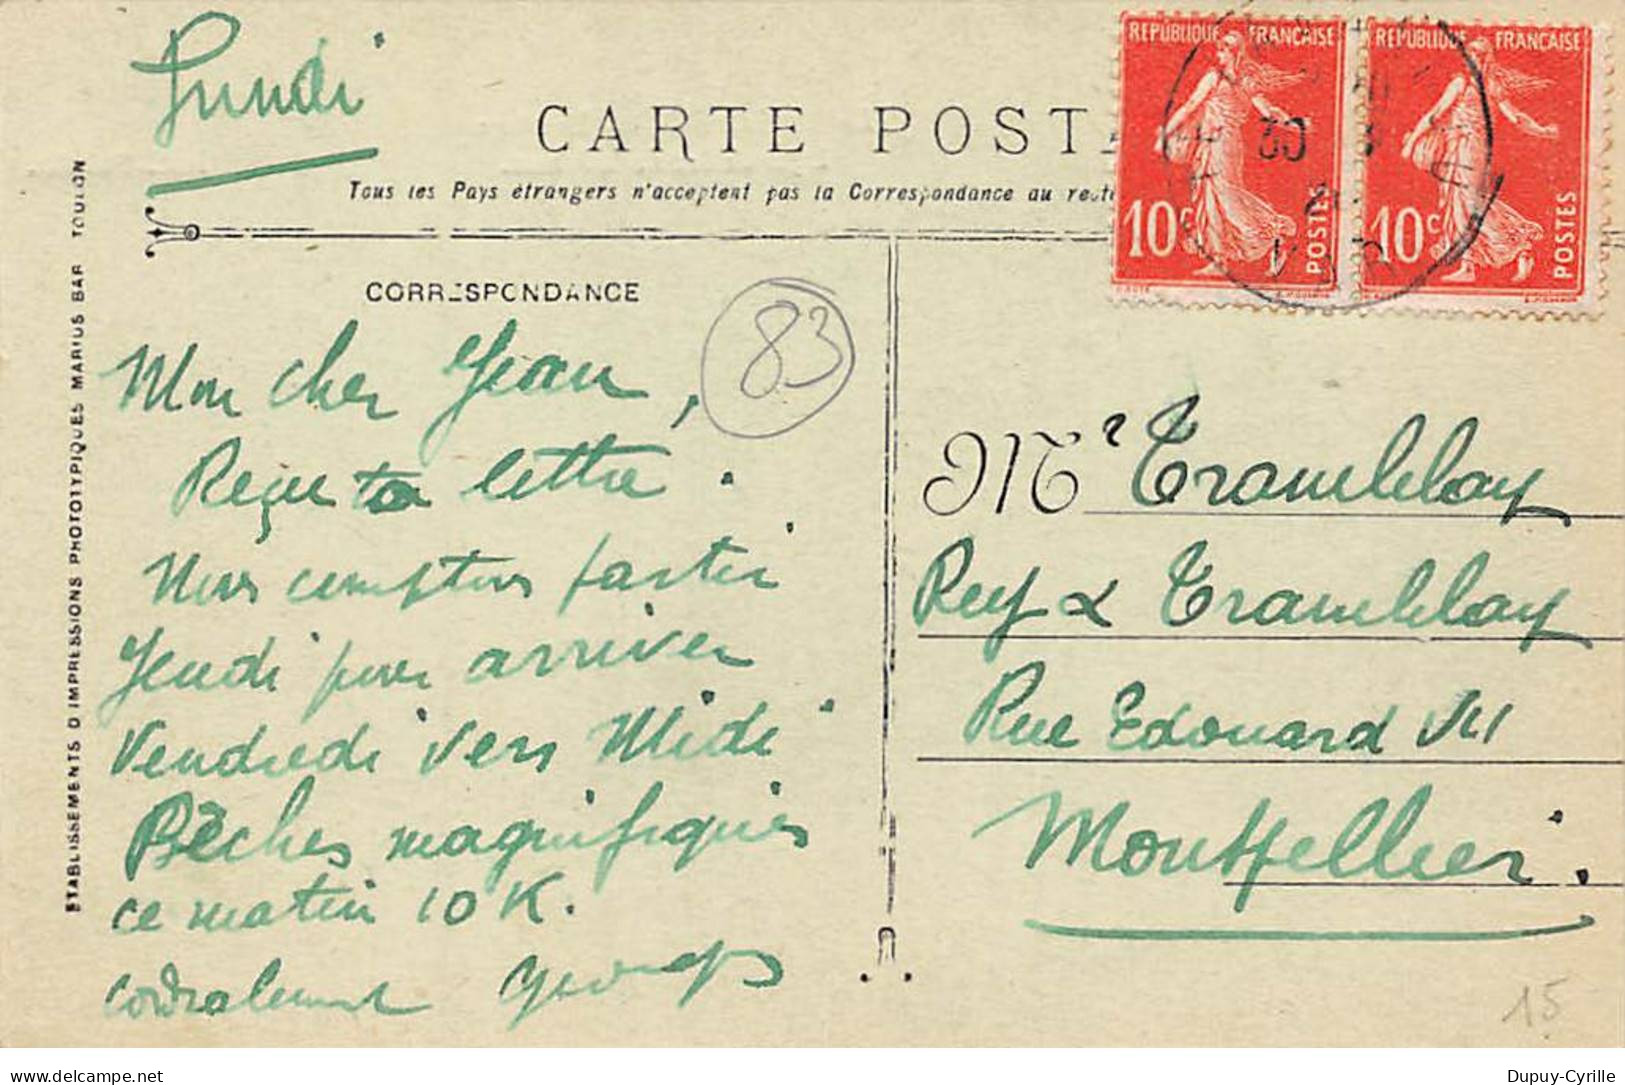 Lundi
CARTE POSTA
Tous les Pays étrangers n'acceptent pas la Correspondance au recto
REPUBLIQUE FRANÇAISE
10c POSTES
REPUBLIQUE FRANÇAISE
10c POSTES
30
VAR
ETABLISSEMENTS D'IMPRESSIONS PHOTOTYPIQUES MARIUS BAR TOULON
CORRESPONDANCE
83
Mon cher Jean,
Reçu ta lettre.
Nous comptons partir
Jeudi pour arriver
Vendredi vers Midi
Pêches magnifiques
ce matin 10 K.
cordialement Georges
Mr Tramblay
Rey & Tramblay
Rue Edouard VII
Montpellier.
15
delcampe.net
Dupuy-Cyrille